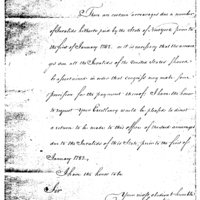 There are certain arrearages due a number
of Invalids hitherto paid by the State of Virginia prior to
the first of January 1782. as it is necessary that the arrearages
due all the Invalids of the United States should
be ascertained in order that Congress may make some
provision for the payment thereof I have the honor
to request Your Excellency would be pleased to direct
a return to be made to this office of the amount arrearages
due to the Invalids of this State prior to the first of
January 1782.
I have the honor to be
Sir
Your most obedient humble